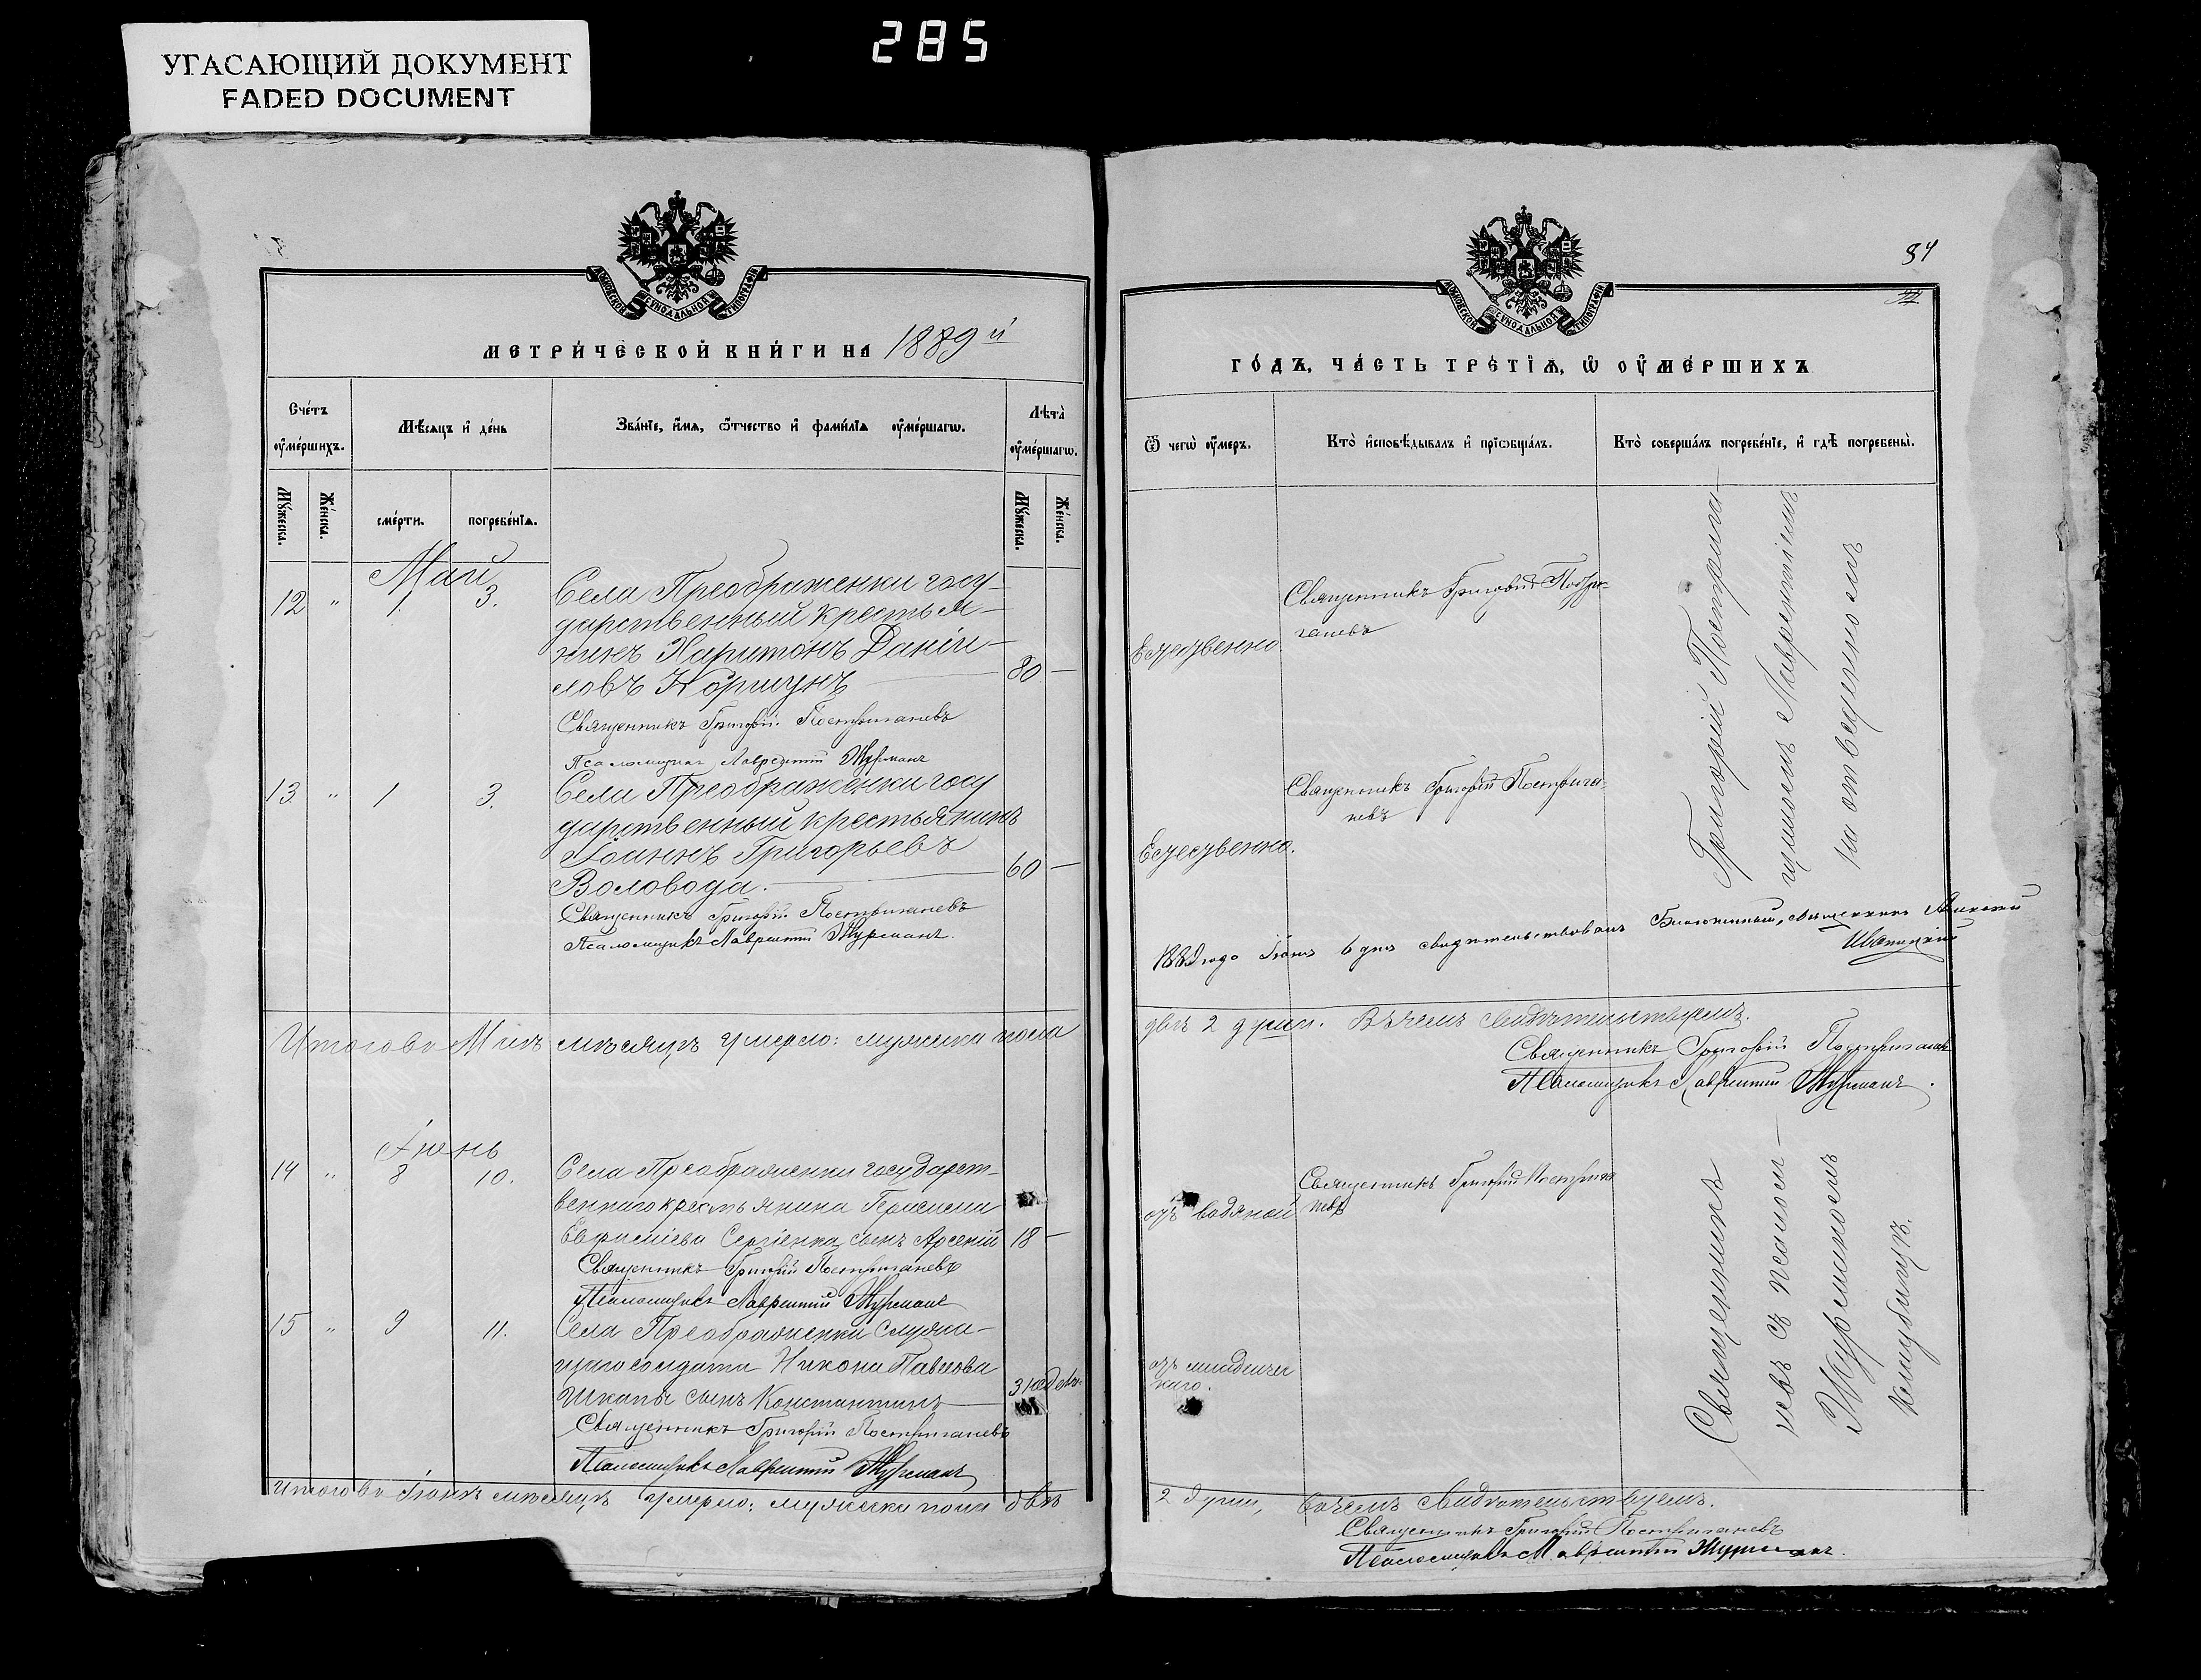 УГАСАЮЩИЙ ДОКУМЕНТ
FADED DOCUMENT
285
МОСКОВСКОЙ СѴНОДАЛЬНОЙ ТИПОГРАФІИ
МЕТРИ́ЧЕСКОЙ КНИ́ГИ НА 1889 й
Сче́тъ ᲂу҆ме́ршихъ.
Мѣ́сяцъ и҆ де́нь
Зва́нїе, и҆́мѧ, ѻ҆́тчество и҆ фами́лїѧ ᲂу҆ме́ршагѡ.
Лѣ́та ᲂу҆ме́ршагѡ.
Мꙋ́жеска.
Же́нска.
сме́рти.
погребе́нїѧ.
Мꙋ́жеска.
Же́нска.
Май
12 " 1 3. Села Преображенки госу-
дарственный крестья-
нинъ Харитонъ Даніи-
ловъ Коршунъ 80 —
Священникъ Григорій Постригачевъ
Псаломщикъ Лаврентий Журманъ
13. " 1 3. Села Преображенки госу
дарственный крестьянинъ
Іоаннъ Григорьевъ
Воловода. 60 —
Священникъ Григорій Постригачевъ
Псаломщикъ Лаврентий Журманъ.
Итого въ Маѣ мѣсяцѣ умерло: мужеска пола
Іюнь
14 " 8 10. Села Преображенки государст-
веннаго крестьянина Герасима
Евфиміева Сергіенка сынъ Арсеній 18 —
Священникъ Григорій Постригачевъ
Псаломщикъ Лаврентий Журманъ
15 " 9 11. Села Преображенки служа-
щаго солдата Никона Павлова
Шкапы сынъ Константинъ 3 недѣль.
Священникъ Григорій Постригачевъ
Псаломщикъ Лаврентий Журманъ
Итого въ Іюнѣ мѣсяцѣ умерло: мужеска пола двѣ
МОСКОВСКОЙ СѴНОДАЛЬНОЙ ТИПОГРАФІИ
84
ГО́ДЪ, ЧА́СТЬ ТРЕ́ТІѦ, Ѡ ОУ҆МЕ́РШИХЪ
Ѿ чегѡ̀ ᲂу҆́меръ.
Кто̀ и҆сповѣ́дывалъ и҆ прїѡбща́лъ.
Кто̀ соверша́лъ погребе́нїе, и҆ гдѣ̀ погребены̀.
Естественно
Священникъ Григорій Постри-
гачевъ
Григорій Постригач-
щикомъ Лаврентіемъ
на отведенномъ
Естественно.
Священникъ Григорій Постригач-
чевъ
1889 года Іюня 6 дня свидѣтельствовалъ Благочинный, священникъ
двѣ 2 души. Въ чемъ свидѣтельствуемъ.
Священникъ Григорій Постригачевъ
Псаломщикъ Лаврентий Журманъ.
отъ водяной
Священникъ Григорій Пострига
чевъ
Священникъ
чевъ съ псалом-
Журманомъ
кладбищѣ.
отъ младенчес
каго.
2 души, въ чемъ свидѣтельствуемъ.
Священникъ Григорій Постригачевъ
Псаломщикъ Лаврентий Журманъ.